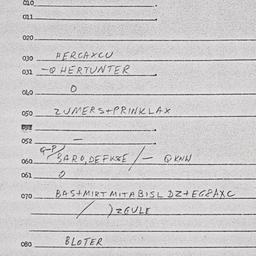 010
011
020
030 HERCAXCU
031 -O HERTUNTER
040 O
050 ZUMERS+PRINKLAX
052 —
G-P
060 SARO, DEFKSE /- QKNW
061 O
070 BAS+MIRTMITABISL DZ+EG8AXC
/ )ZGULE
080 BLOTER